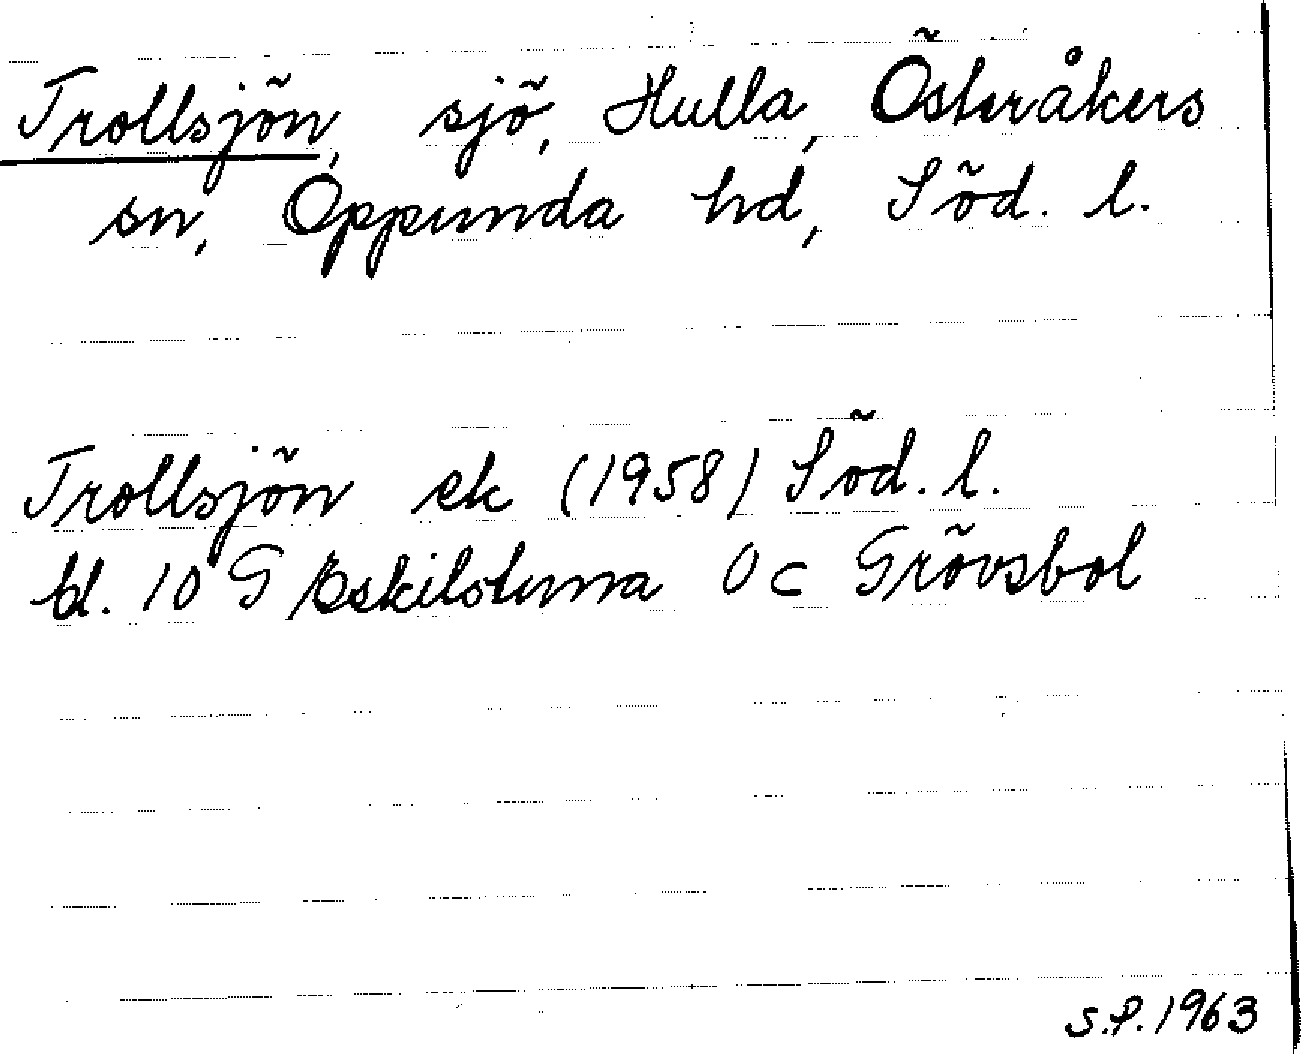 Trollsjön, sjö, Hulla, Österåkers
sn, Oppunda hd, Söd. l.
Trollsjön ek (1958) Söd. l.
bl. 10 G Eskilstuna 0 c Grövsbol
S.S. 1963